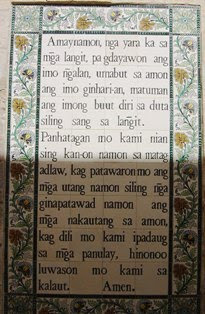 Amaynamon, nga yara ka sa
mg̃a langit, pagdayawon ang
imo ng̃alan, umabut sa amon
ang imo ginhari-an, matuman
ang imong buut diri sa duta
siling sang sa lang̃it.
Panhatagan mo kami nian
sing kan-on namon sa matag
adlaw, kag patawaron mo ang
mg̃a utang namon siling ng̃a
ginapatawad namon ang
mg̃a nakautang sa amon,
kag dili mo kami ipadaug
sa mg̃a panulay, hinonoo
luwason mo kami sa
kalaut. Amen.